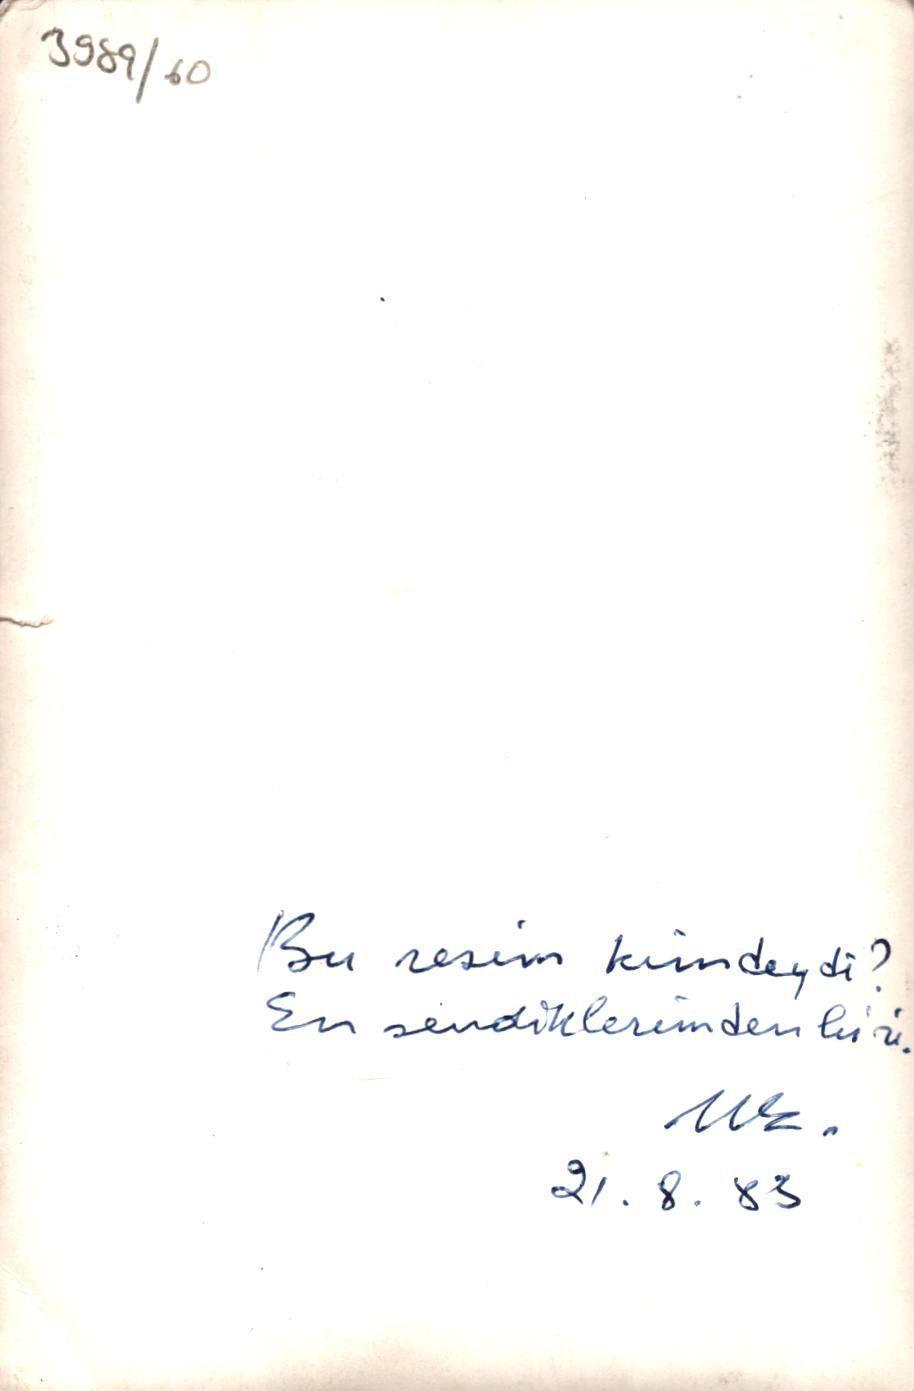 3989/60
Bu resim kimdeydi?
En sevdiklerimden biri.
21.8.83